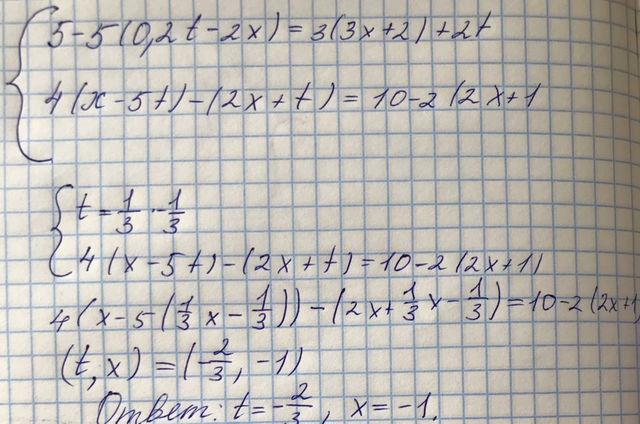 5-5(0,2t-2x)=3(3x+2)+2t
4(x-5t)-(2x+t)=10-2(2x+1
t=1/3-1/3
4(x-5t)-(2x+t)=10-2(2x+1)
4(x-5(1/3x-1/3))-(2x+1/3x-1/3)=10-2(2x+1)
(t,x)=(-2/3,-1)
Ответ: t=-2/3, x=-1.